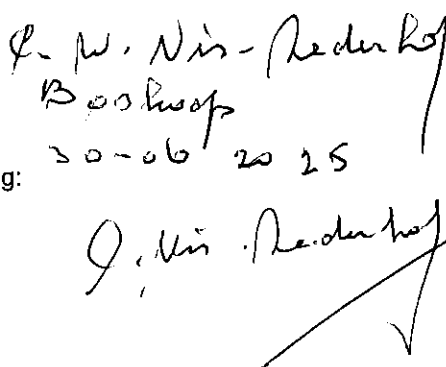 C. W. Nis-Rederhof
Boskoop
30-06 2025
g:
C. Nis. Rederhof